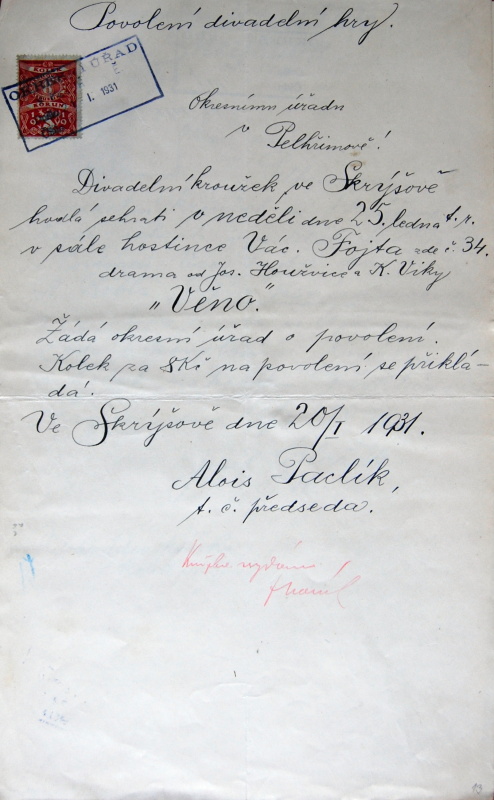 Povolení divadelní hry.
KOLEK
KORUN
I. 1931
Okresnímu úřadu
v Pelhřimově!
Divadelní kroužek ve Skrýšově
hodlá sehrati v neděli dne 25. ledna t. r.
v sále hostince Vác. Fojta zde č. 34.
drama od Jos. a K. Viky
"Věno."
Žádá okresní úřad o povolení.
Kolek za 8 Kč na povolení se přiklá-
dá.
Ve Skrýšově dne 20/I 1931.
Alois Paclík,
t. č. předseda.